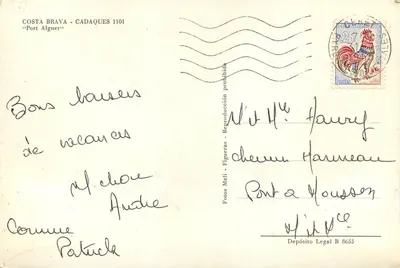 COSTA BRAVA - CADAQUES 1101
"Port Algner"
Bons baisers
de vacances
Michou
André
Corinne
Patrick
Fotos Meli - Figueras - Reproducción prohibida
M et Me Haury
chemin Harmeau
Pont a Mousson
M et Me
Depósito Legal B 8653